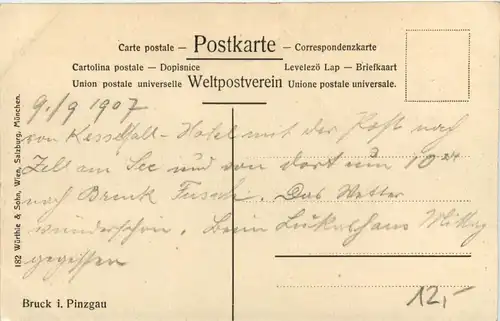 Carte postale — Postkarte — Correspondenzkarte
Cartolina postale — Dopisnice Levelezö Lap — Briefkaart
Union postale universelle Weltpostverein Unione postale universale.
9./9 1907
von Kesselfall-Hotel mit der Post nach
Zell am See und von dort um 10
nach Bruck Fusch. Das Wetter
wunderschön. Beim Lukashans Mittag
gegessen
182 Würthle & Sohn, Wien, Salzburg, München.
Bruck i. Pinzgau
12,-